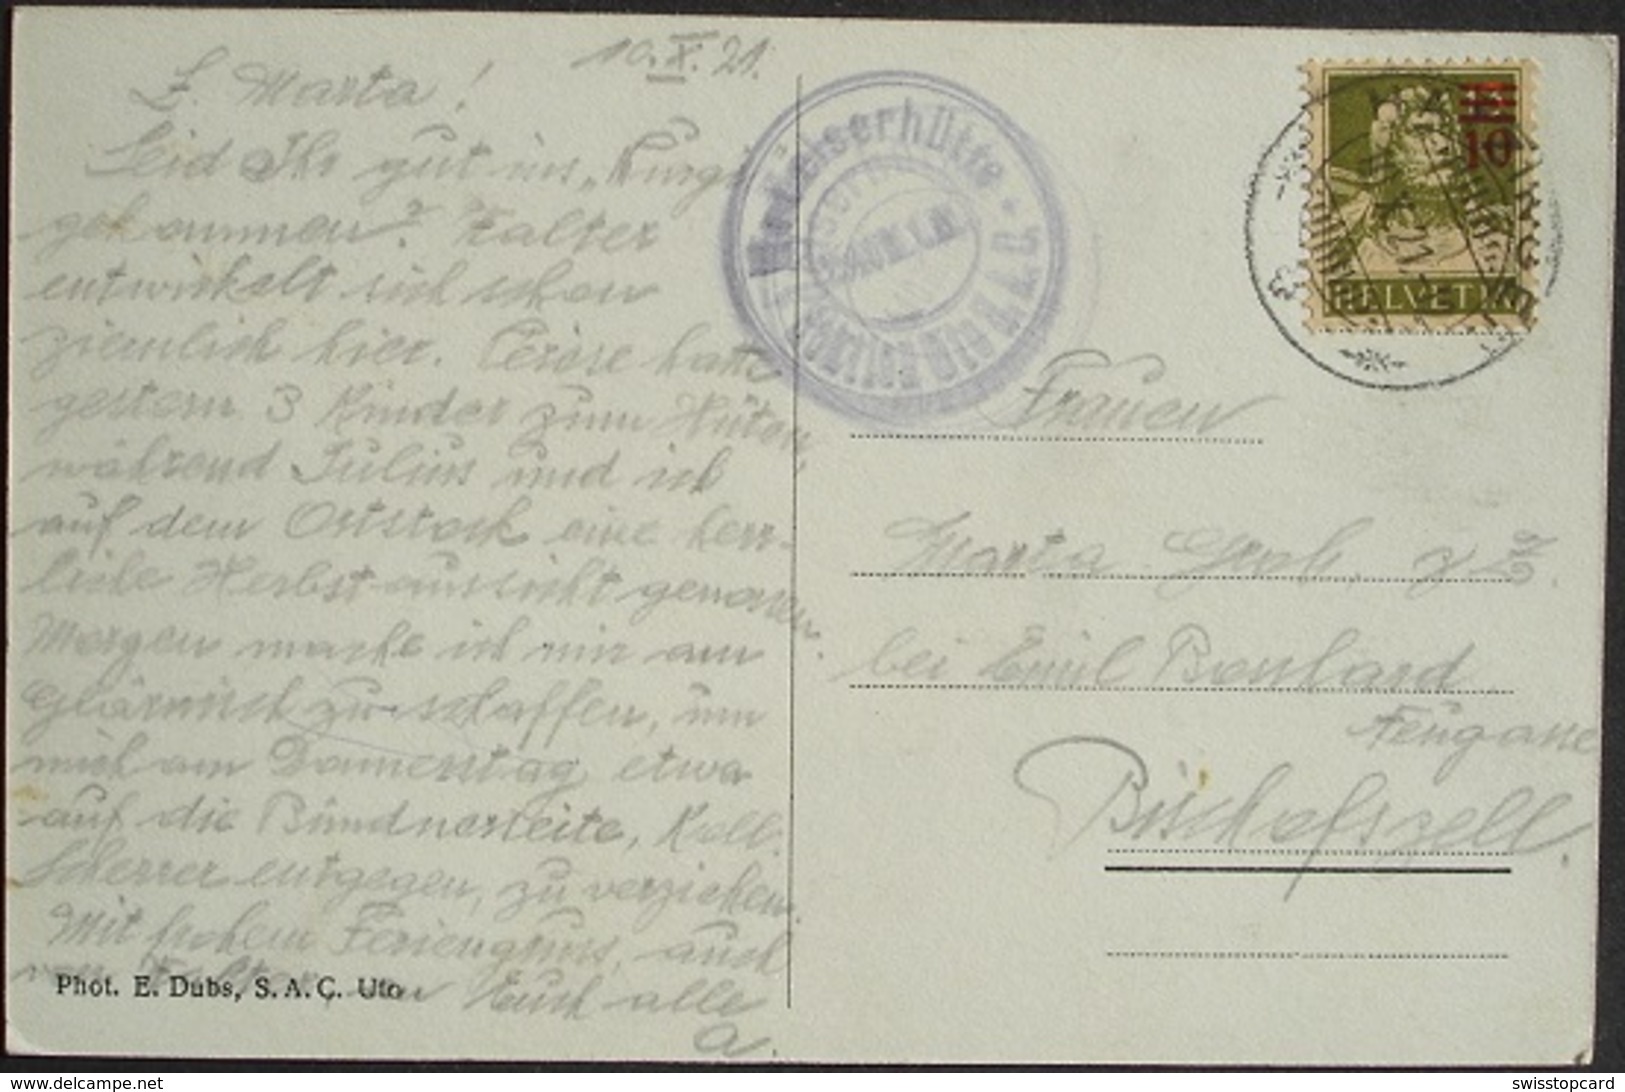 10.X.21.
L. Marta!
Seid Ihr gut ins "Hurgi
gekommen? Falter
entwickelt sich schon
ziemlich hier. hatte
gestern 3 Kinder zum Hüten,
während Julius und ich
auf dem Ortstock eine herr-
liche Herbstaussicht genossen.
Morgen mache ich mir am
Glärnisch zu schaffen, um
mich am Donnerstag etwa
auf die Bündnerseite, Koll.
Scherrer entgegen, zu verziehen.
Mit frohem Feriengruss, auch
von Falter, an Euch alle
A.
Phot. E. Dubs, S. A. C. Uto
HELVETIA
10
21
Frauen
Marta Grob, z Z.
bei Emil Bonhard
Neugasse
Bischofszell.
swisstopcard